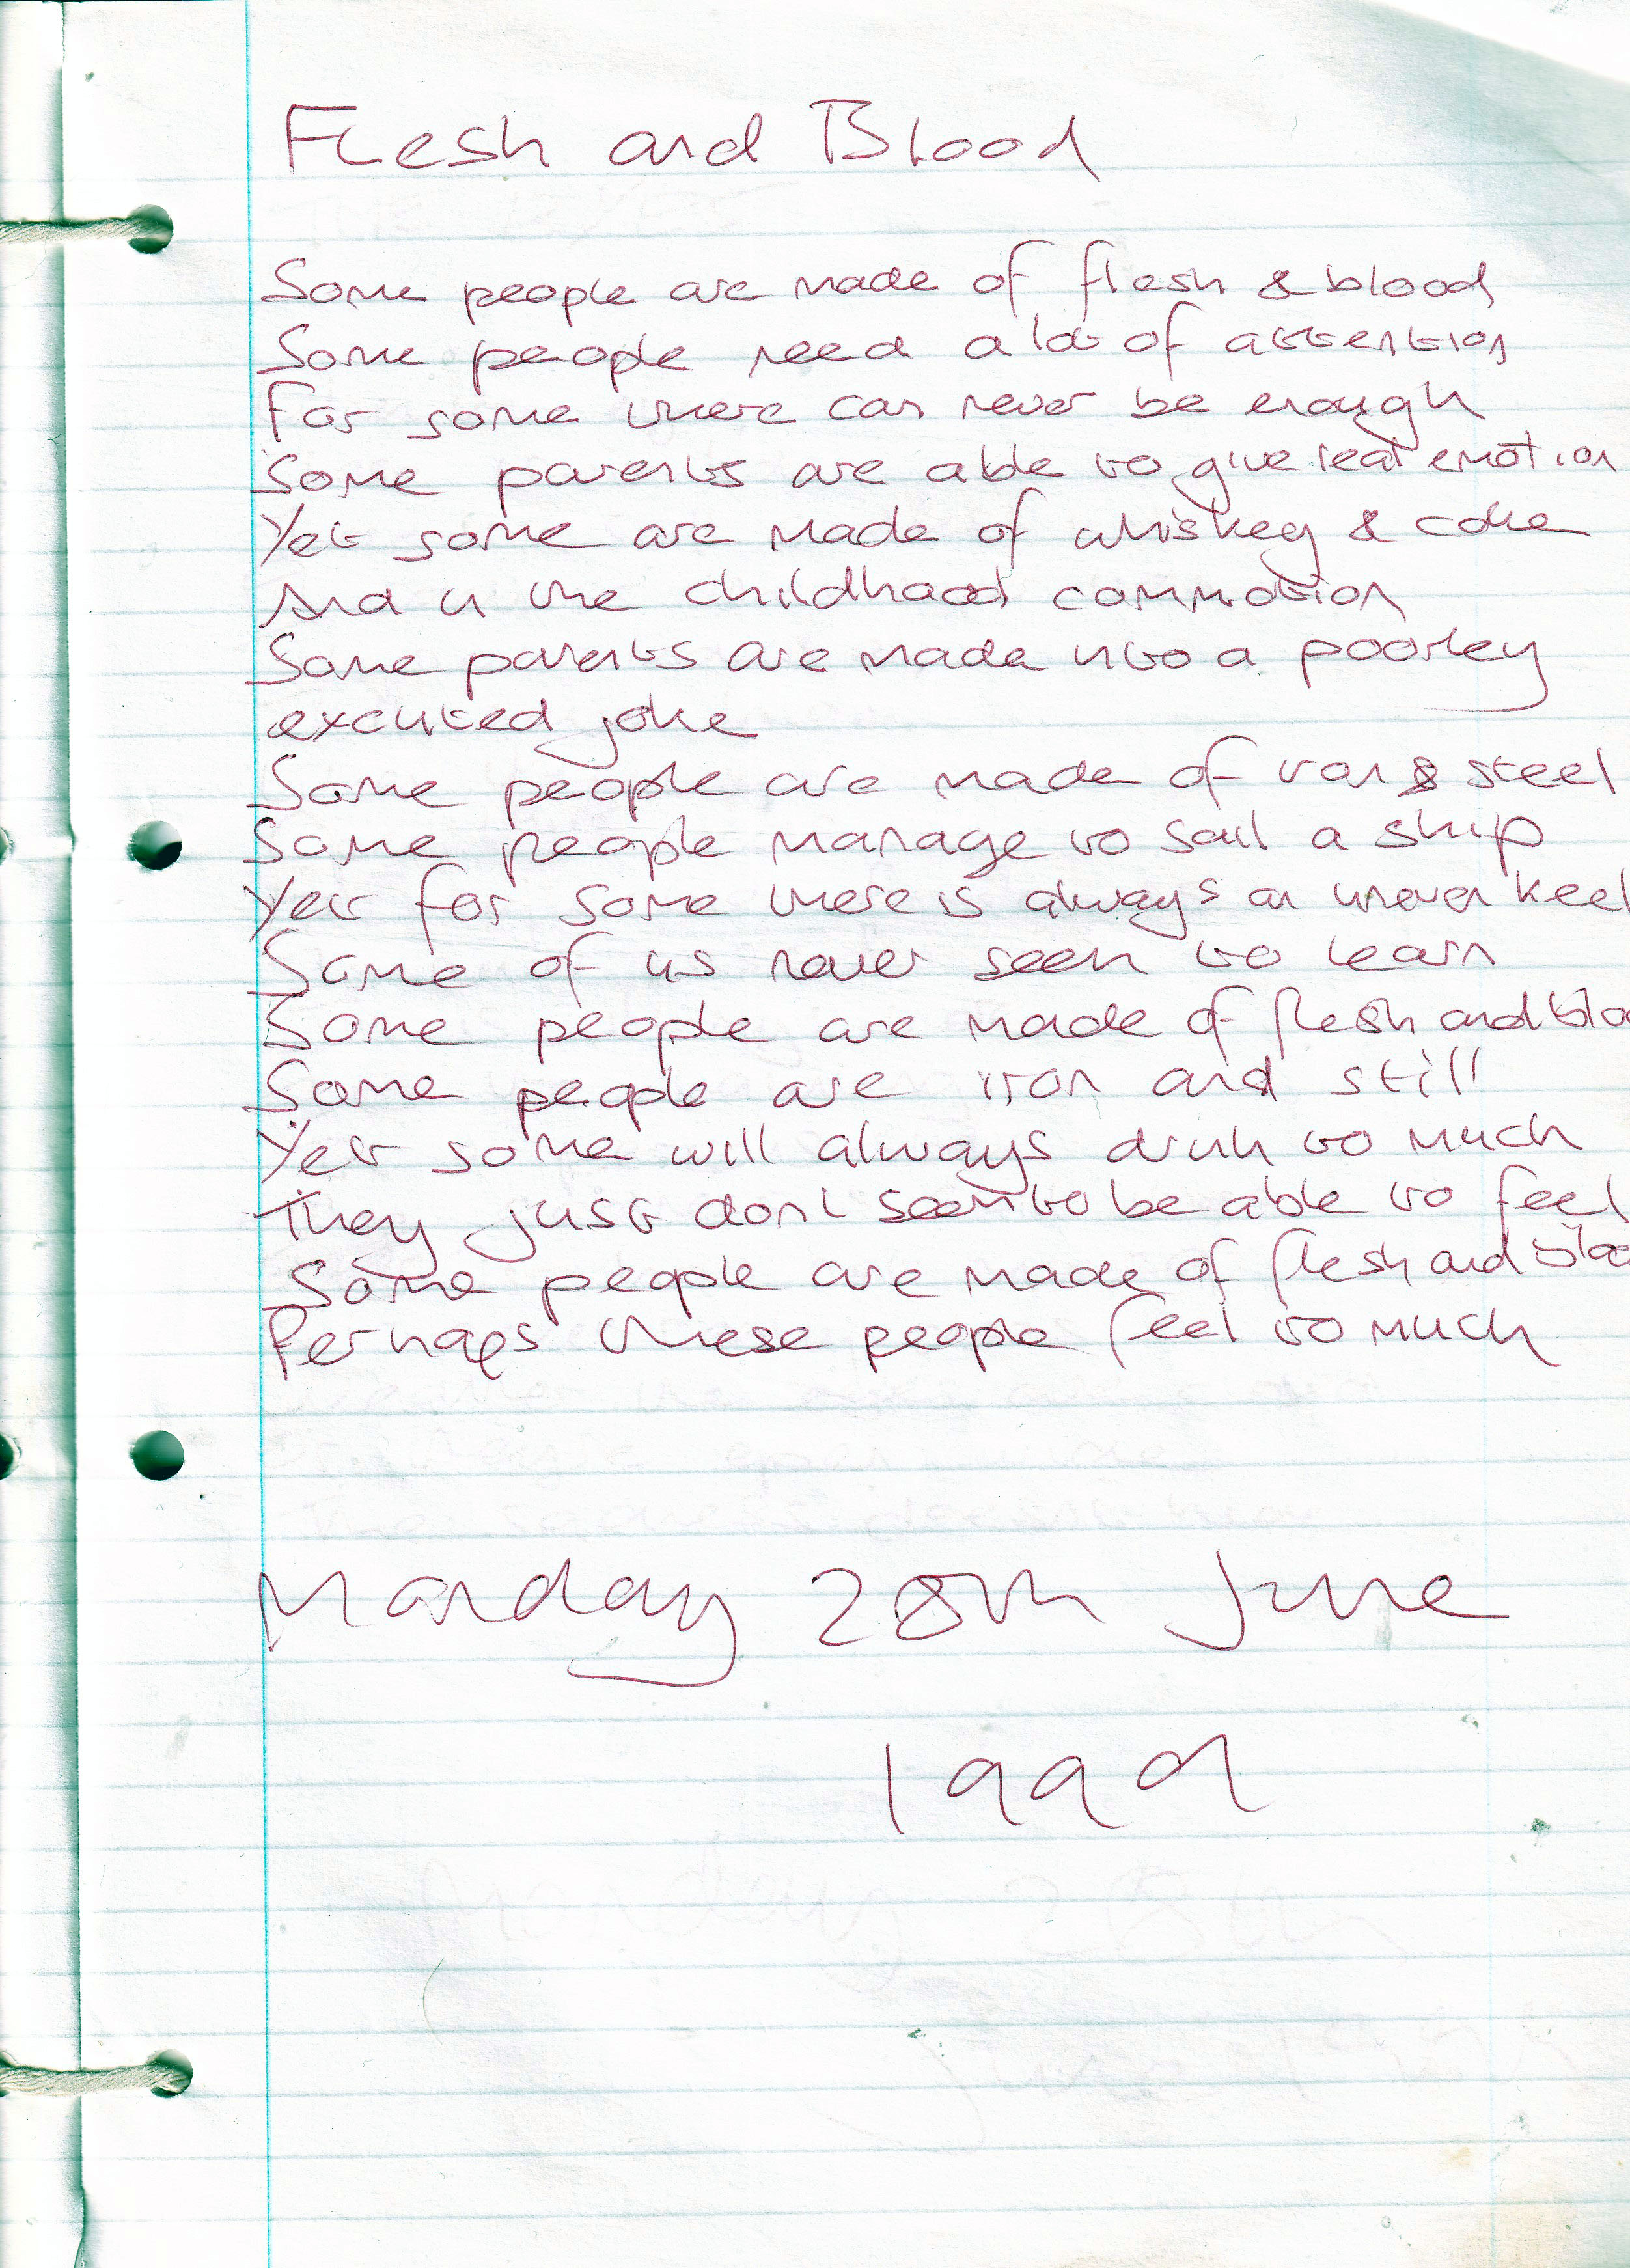 Flesh and Blood
Some people are made of flesh & blood
Some people need a lot of attention
For some there can never be enough
Some parents are able to give real emotion
Yet some are made of whiskey & coke
And in the childhood commotion
Some parents are made into a poorley
excuted joke
Some people are made of iron & steel
Some people manage to sail a ship
Yet for some there is always an uneven keel
Some of us never seem to learn
Some people are made of flesh and bloo
Some people are iron and still
Yet some will always drink to much
They just don't seem to be able to feel
Some people are made of flesh and bloo
Perhaps these people feel to much
Monday 28th June
1999